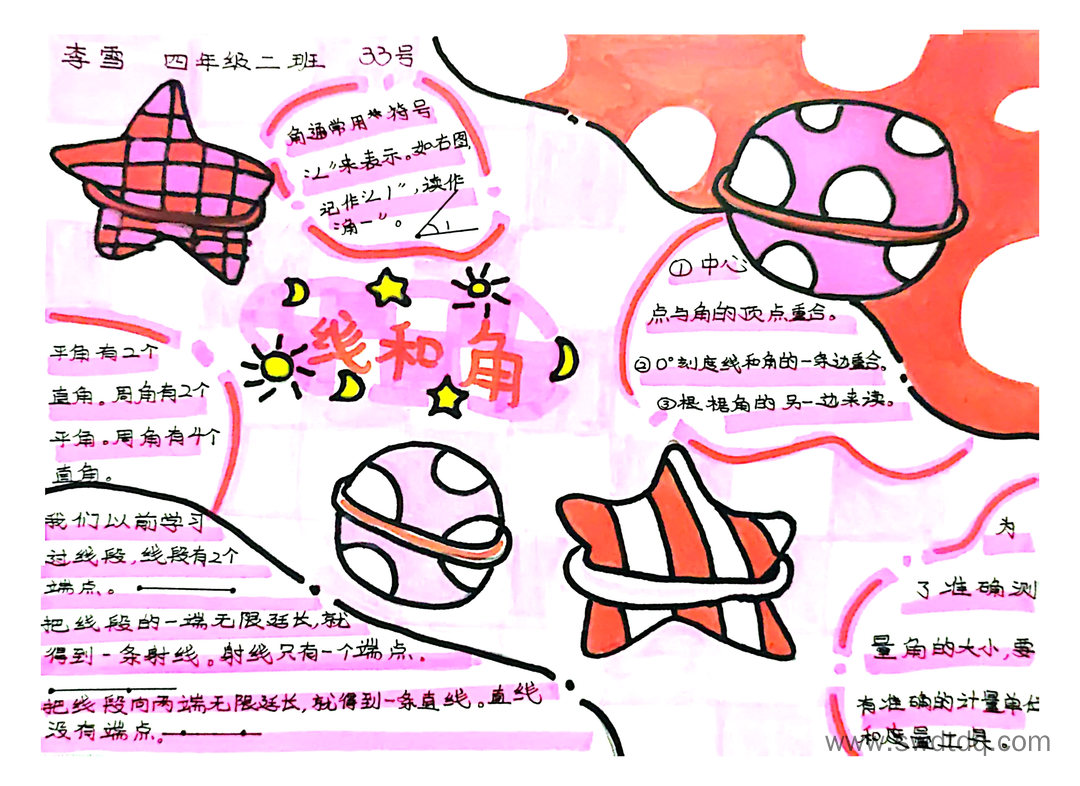 李雪 四年级二班 33号
角通常用符号
“∠”来表示。如右图
记作“∠1”,读作
“角一”。
1
线和角
①中心
点与角的顶点重合。
②0°刻度线和角的一条边重合。
③根据角的另一边来读。
平角有2个
直角。周角有2个
平角。周角有4个
直角。
我们以前学习
过线段,线段有2个
端点。
把线段的一端无限延长,就
得到一条射线。射线只有一个端点.
把线段向两端无限延长,就得到一条直线。直线
没有端点。
为
了准确测
量角的大小,要
有准确的计量单位
和度量工具。
www.swdtdq.com